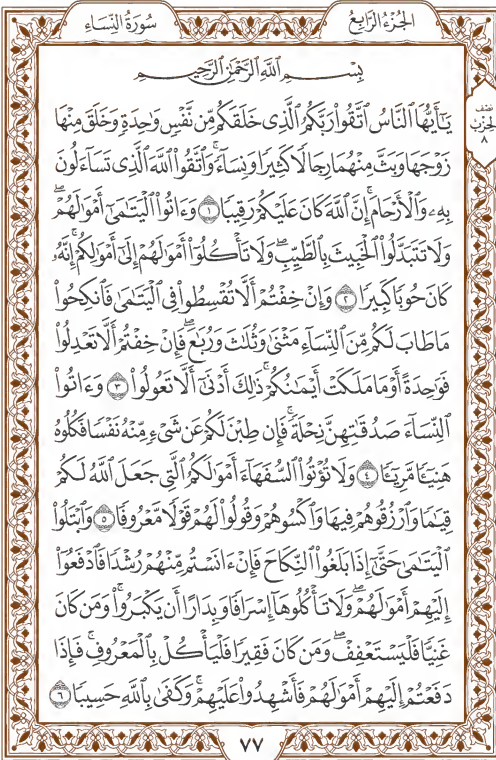 سُورَةُ النِّسَاءِ
الجُزْءُ الرَّابِعُ
نصف
الحزب
٨
بِسْمِ اللَّهِ الرَّحْمَٰنِ الرَّحِيمِ
يَـٰٓأَيُّهَا ٱلنَّاسُ ٱتَّقُوا۟ رَبَّكُمُ ٱلَّذِى خَلَقَكُم مِّن نَّفْسٍ وَٰحِدَةٍ وَخَلَقَ مِنْهَا
زَوْجَهَا وَبَثَّ مِنْهُمَا رِجَالًا كَثِيرًا وَنِسَآءً ۚ وَٱتَّقُوا۟ ٱللَّهَ ٱلَّذِى تَسَآءَلُونَ
بِهِۦ وَٱلْأَرْحَامَ ۚ إِنَّ ٱللَّهَ كَانَ عَلَيْكُمْ رَقِيبًا ١ وَءَاتُوا۟ ٱلْيَتَـٰمَىٰٓ أَمْوَٰلَهُمْ ۖ
وَلَا تَتَبَدَّلُوا۟ ٱلْخَبِيثَ بِٱلطَّيِّبِ ۖ وَلَا تَأْكُلُوٓا۟ أَمْوَٰلَهُمْ إِلَىٰٓ أَمْوَٰلِكُمْ ۚ إِنَّهُۥ
كَانَ حُوبًا كَبِيرًا ٢ وَإِنْ خِفْتُمْ أَلَّا تُقْسِطُوا۟ فِى ٱلْيَتَـٰمَىٰ فَٱنكِحُوا۟
مَا طَابَ لَكُم مِّنَ ٱلنِّسَآءِ مَثْنَىٰ وَثُلَـٰثَ وَرُبَـٰعَ ۖ فَإِنْ خِفْتُمْ أَلَّا تَعْدِلُوا۟
فَوَٰحِدَةً أَوْ مَا مَلَكَتْ أَيْمَـٰنُكُمْ ۚ ذَٰلِكَ أَدْنَىٰٓ أَلَّا تَعُولُوا۟ ٣ وَءَاتُوا۟
ٱلنِّسَآءَ صَدُقَـٰتِهِنَّ نِحْلَةً ۚ فَإِن طِبْنَ لَكُمْ عَن شَىْءٍ مِّنْهُ نَفْسًا فَكُلُوهُ
هَنِيٓـًٔا مَّرِيٓـًٔا ٤ وَلَا تُؤْتُوا۟ ٱلسُّفَهَآءَ أَمْوَٰلَكُمُ ٱلَّتِى جَعَلَ ٱللَّهُ لَكُمْ
قِيَـٰمًا وَٱرْزُقُوهُمْ فِيهَا وَٱكْسُوهُمْ وَقُولُوا۟ لَهُمْ قَوْلًا مَّعْرُوفًا ٥ وَٱبْتَلُوا۟
ٱلْيَتَـٰمَىٰ حَتَّىٰٓ إِذَا بَلَغُوا۟ ٱلنِّكَاحَ فَإِنْ ءَانَسْتُم مِّنْهُمْ رُشْدًا فَٱدْفَعُوٓا۟
إِلَيْهِمْ أَمْوَٰلَهُمْ ۖ وَلَا تَأْكُلُوهَآ إِسْرَافًا وَبِدَارًا أَن يَكْبَرُوا۟ ۚ وَمَن كَانَ
غَنِيًّا فَلْيَسْتَعْفِفْ ۖ وَمَن كَانَ فَقِيرًا فَلْيَأْكُلْ بِٱلْمَعْرُوفِ ۚ فَإِذَا
دَفَعْتُمْ إِلَيْهِمْ أَمْوَٰلَهُمْ فَأَشْهِدُوا۟ عَلَيْهِمْ ۚ وَكَفَىٰ بِٱللَّهِ حَسِيبًا ٦
٧٧